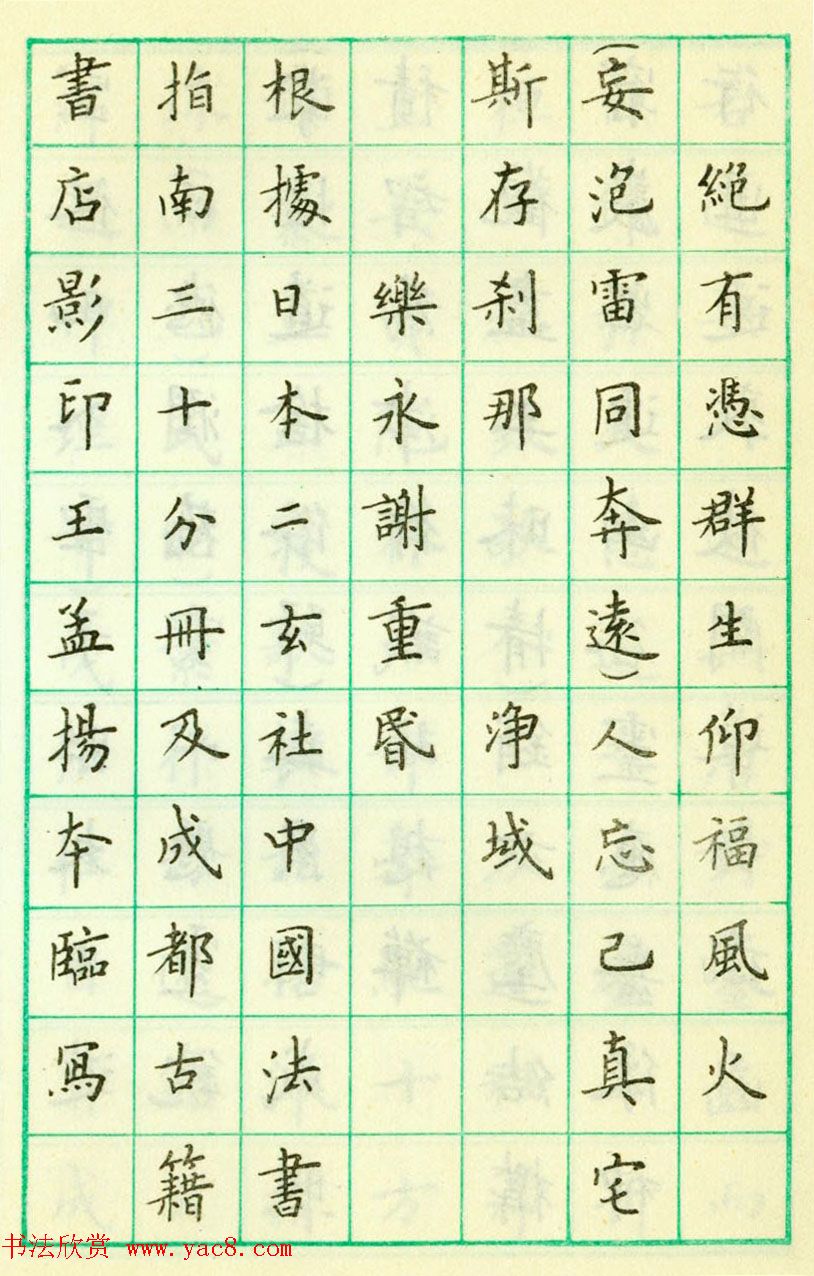 絶有憑群生仰福風火
(妄泡雷同奔遠)人忘己真宅
斯存刹那 淨域
樂永謝重昬
根據日本二玄社中國法書
指南三十分冊及成都古籍
書店影印王孟揚夲臨寫
书法欣赏 www.yac8.com